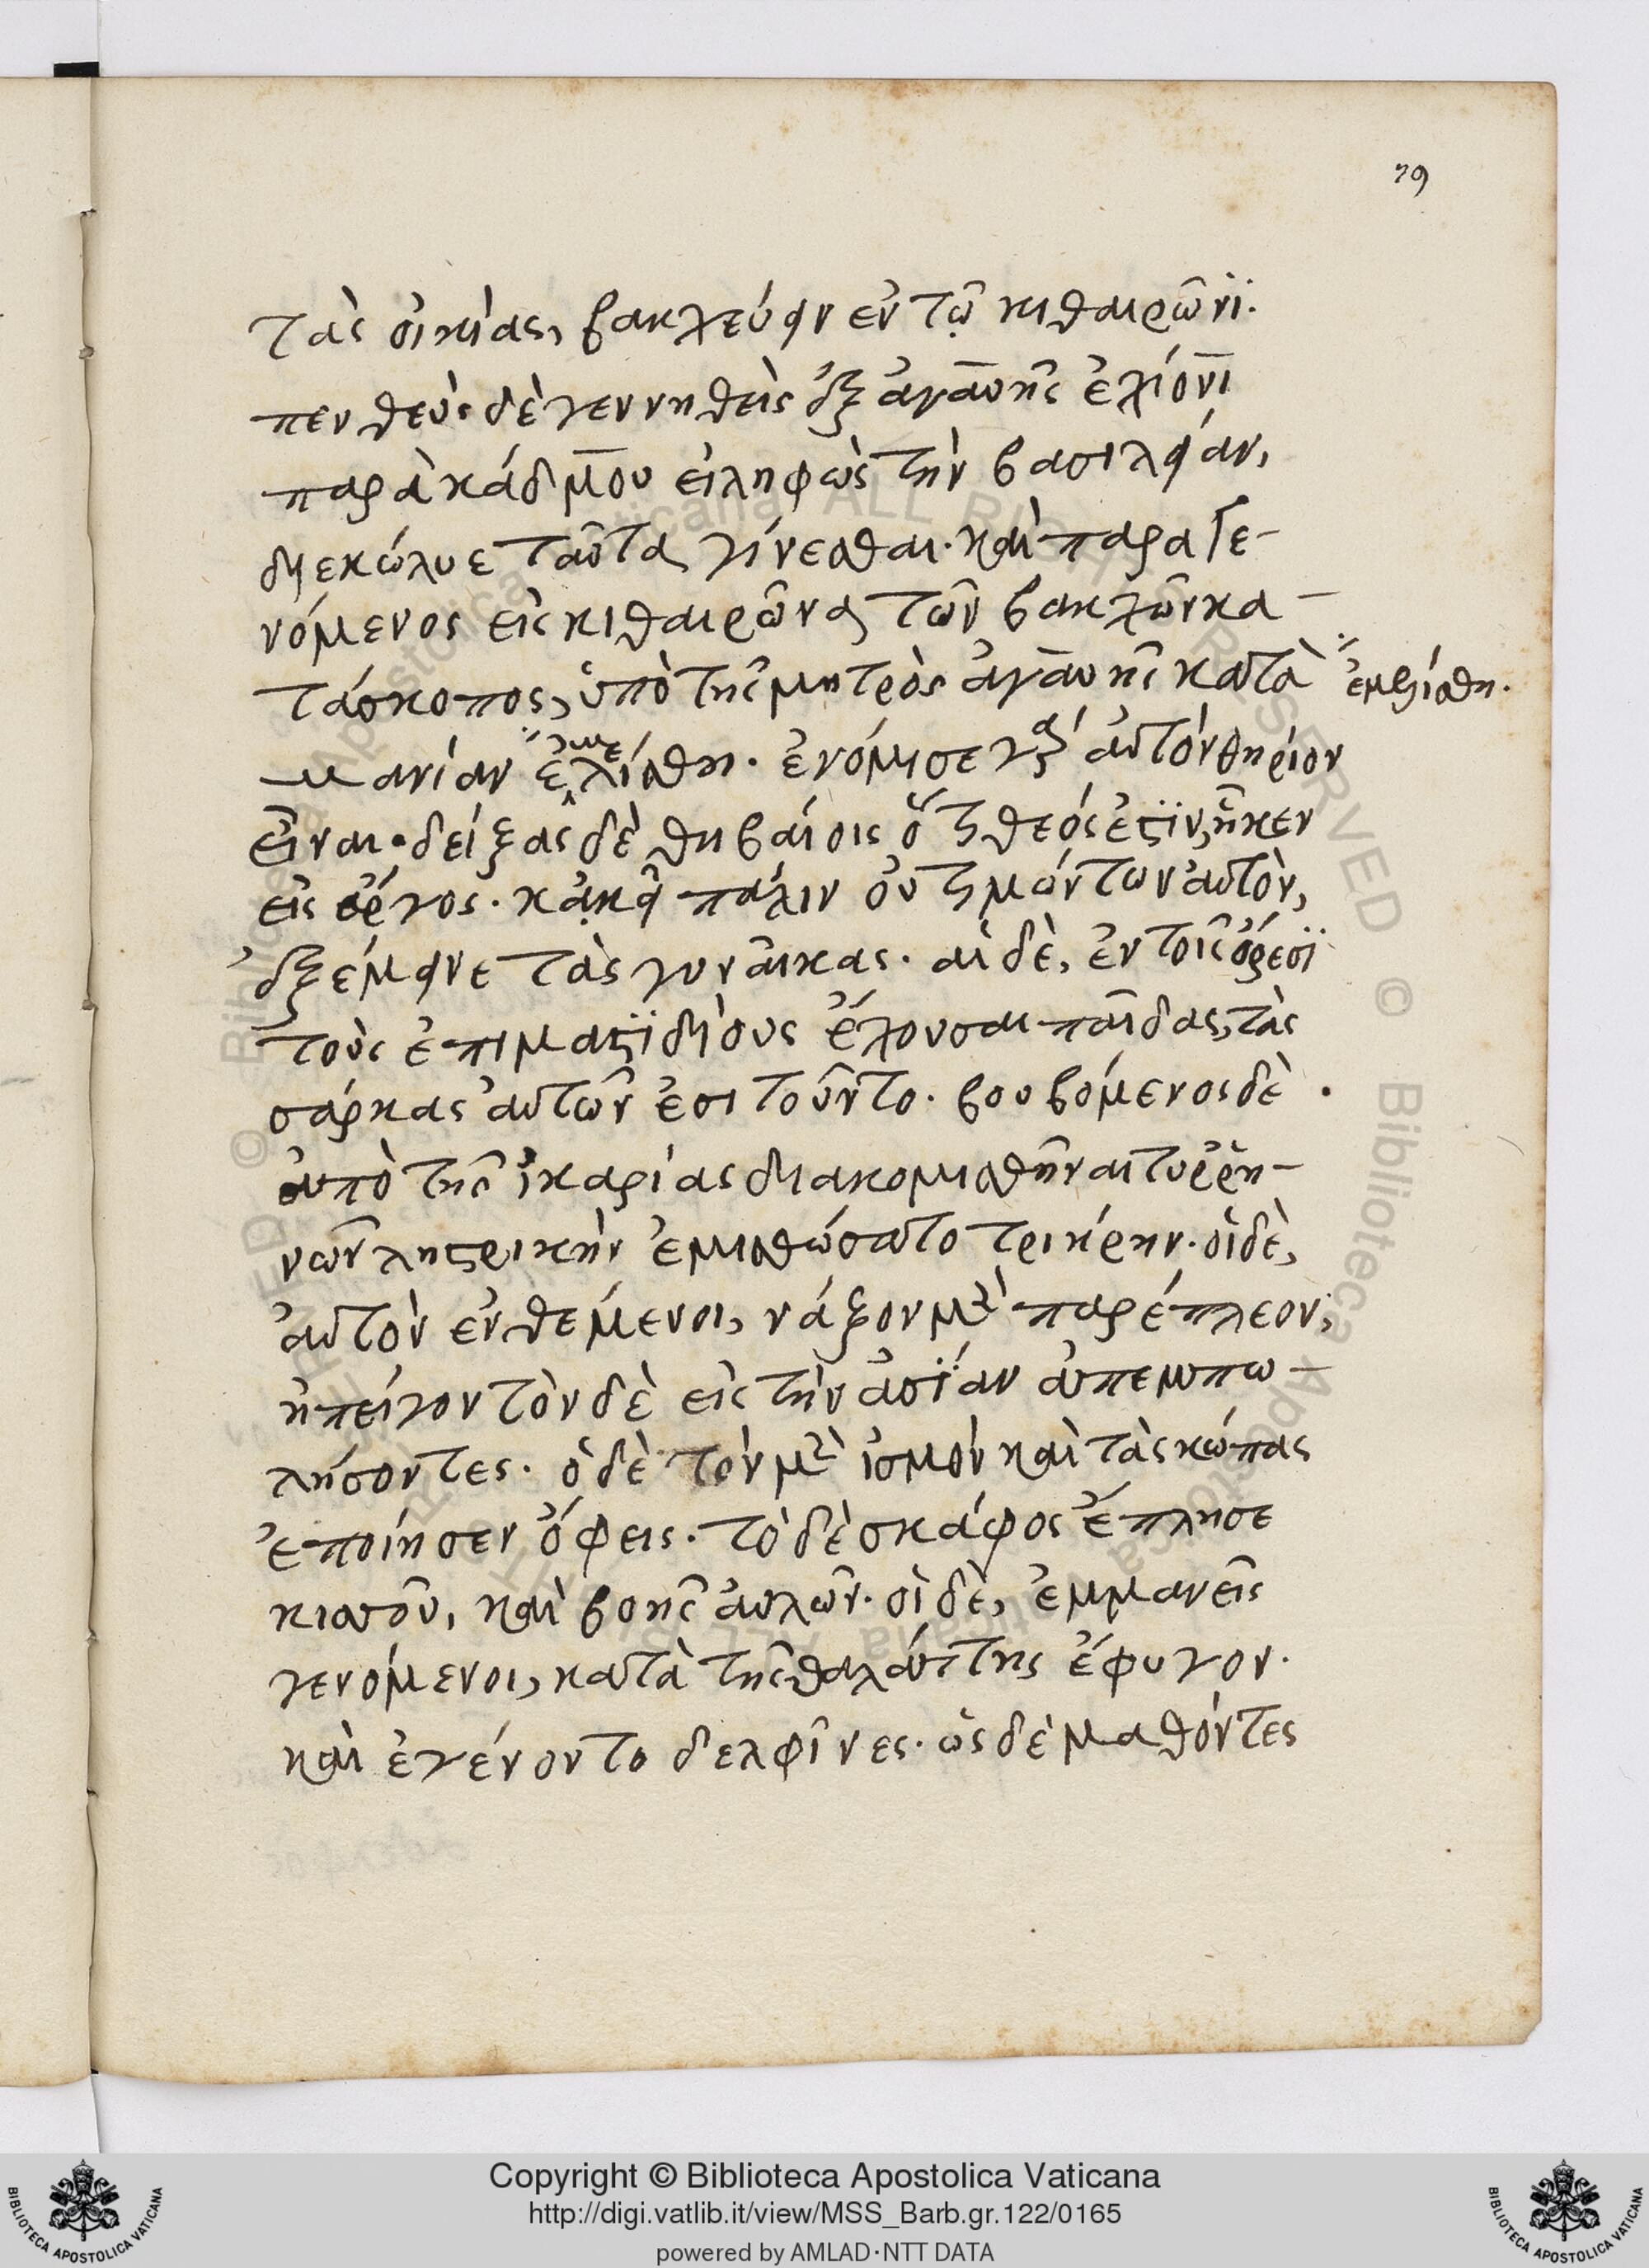 79
τὰς οἰκίας, βακχεύειν ἐν τῷ κιθαιρῶνϊ.
πενθεὺς δὲ γεννηθεὶς ἐξ ἀγαυῆς ἐχίονι
παρὰ κάδμου εἰληφὼς τὴν βασιλείαν,
διεκώλυε ταῦτα γίνεσθαι. καὶ παραγε-
νόμενος εἰς κιθαιρῶνα τῶν βακχῶν κα-
τάσκοπος, ὑπὸ τῆς μητρὸς ἀγαυῆς κατὰ ἐμελίσθη.
μανίαν ἐμελίσθη. ἐνόμισε γὰρ αὐτὸν θηρίον
εἶναι. δείξας δὲ θηβαίοις ὅτι θεός ἐστϊν, ἧκεν
εἰς ἄργος. κἀκεῖ πάλιν οὐ τιμώντων αὐτὸν,
ἐξέμηνε τὰς γυναῖκας. αἱ δὲ, ἐν τοῖς ὄρεσϊ
τοὺς ἐπιμαστϊδίους ἔχουσαι παῖδας, τὰς
σάρκας αὐτῶν ἐσιτοῦντο. βουβόμενος δὲ
ἀπὸ τῆς ἰκαρίας διακομισθῆναι τυῤῥη-
νῶν ληστρικὴν ἐμισθώσατο τριήρην. οἱ δὲ,
αὐτὸν ἐνθέμενοι, νάξον μὲν παρέπλεον,
ἠπείγοντο δὲ εἰς τὴν ἀσϊαν ἀπεμπω-
λήσοντες. ὁ δὲ τὸν μὲν ἰσμὸν καὶ τὰς κώπας
ἐποίησεν ὄφεις. τὸ δὲ σκάφος ἔπλησε
κισσοῦ, καὶ βοῆς αὐλῶν. οἱ δὲ, ἐμμανεῖς
γενόμενοι, κατὰ τῆς θαλάττης ἔφυγον.
καὶ ἐγένοντο δελφῖνες. ὡς δὲ μαθόντες
Copyright © Biblioteca Apostolica Vaticana
http://digi.vatlib.it/view/MSS_Barb.gr.122/0165
powered by AMLAD·NTT DATA
BIBLIOTECA APOSTOLICA VATICANA
BIBLIOTECA APOSTOLICA VATICANA